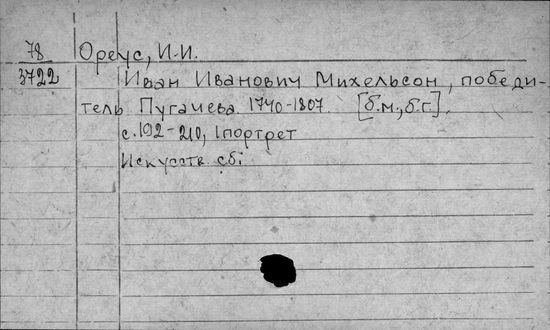 78 Ореус, И.И.
3722 Иван Иванович Михельсон, победи-
тель Пугачева. 1740-1807. [б.м., б.г.],
с. 192-210, 1 портрет
Искусств. сб: